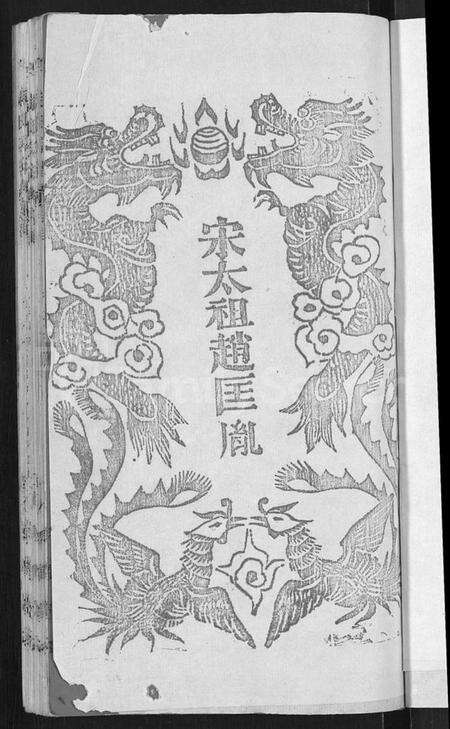 宋太祖趙匡胤